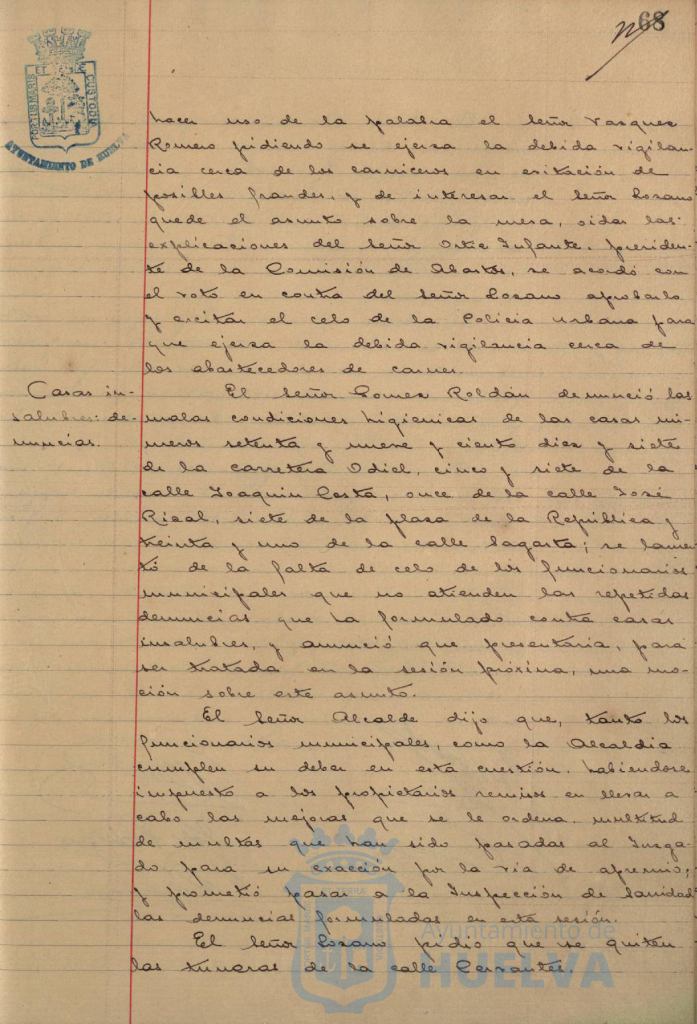 68
PORTUS MARIS ET TERRE CUSTODIA
AYUNTAMIENTO DE HUELVA
hacer uso de la palabra el Señor Vazquez
Romero pidiendo se ejerza la debida vigilan-
cia cerca de los carniceros en evitación de
posibles fraudes, y de interesar el Señor Lozano
quede el asunto sobre la mesa, oidas las
explicaciones del Señor Ortiz Infante, presiden-
te de la Comisión de Abastos, se acordó con
el voto en contra del Señor Lozano aprobarlo
y excitar el celo de la Policia Urbana para
que ejerza la debida vigilancia cerca de
los abastecedores de carnes.
Casas in-
salubres: de-
nuncias.
El Señor Gomez Roldán denunció las
malas condiciones higienicas de las casas nú-
meros setenta y nueve y ciento diez y siete
de la carretera Odiel, cinco y siete de la
calle Joaquin Costa, once de la calle José
Rizal, siete de la plaza de la República y
treinta y uno de la calle Sagasta; se lamen-
tó de la falta de celo de los funcionarios
municipales que no atienden las repetidas
denuncias que ha formulado contra casas
insalubres, y anunció que presentaria, para
ser tratada en la sesión próxima, una mo-
ción sobre este asunto.
El Señor Alcalde dijo que, tanto los
funcionarios municipales, como la Alcaldia
cumplen su deber en esta cuestión, habiendose
impuesto a los propietarios remisos en llevar a
cabo las mejoras que se le ordena, multitud
de multas que han sido pasadas al Juzga-
do para su exacción por la via de apremio;
y prometió pasar a la Inspección de Sanidad
las denuncias formuladas en esta sesión.
El Señor Lozano pidio que se quiten
las tuneras de la calle Cervantes.
Ayuntamiento de
HUELVA